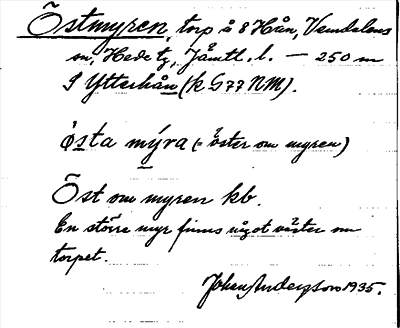 Östmyren, torp å 8 Hån, Vemdalens
sn, Hede tg, Jämtl. l. — 250 m
S Ytterhån (k G77 NM).
østa mýra (= öster om myren)
Öst om myren kb.
En större myr finns något väster om
torpet.
Johan Anderzson 1935.